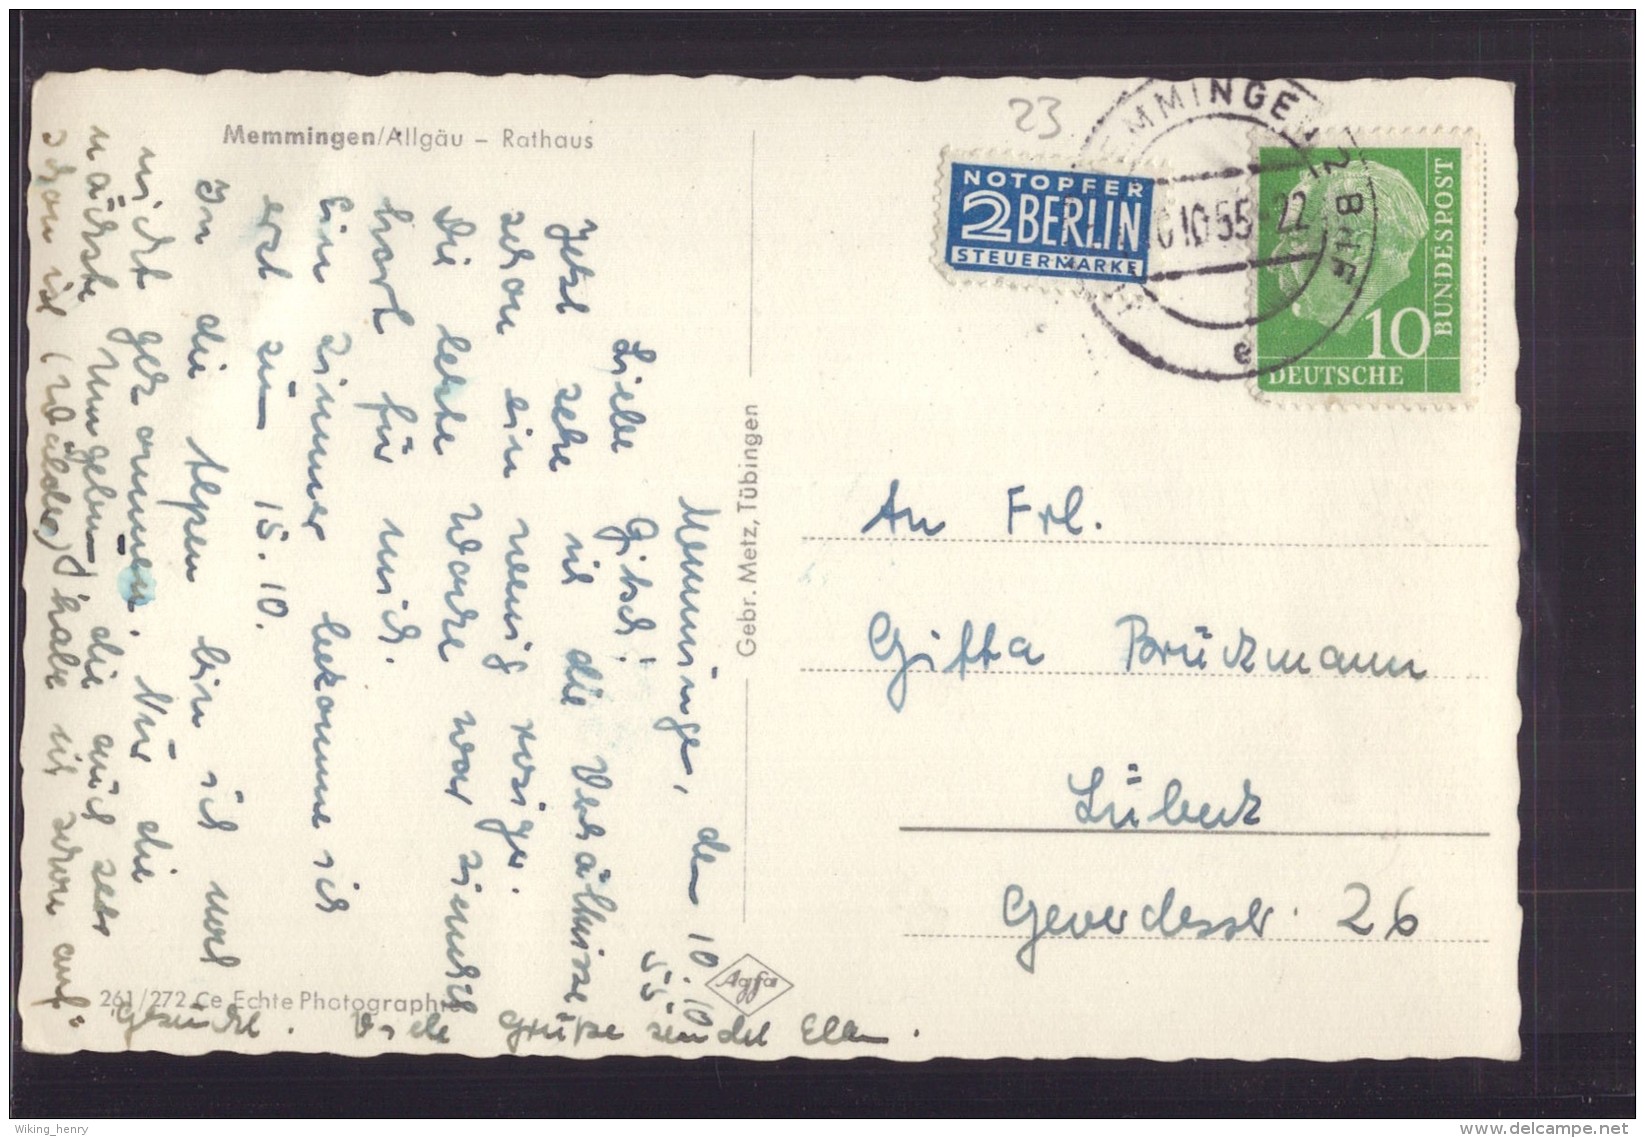 Memmingen/Allgäu – Rathaus
23
NOTOPFER
2 BERLIN
STEUERMARKE
MEMMINGEN 2 BHF
10 55-22
e
DEUTSCHE
BUNDESPOST
10
Memmingen, den 10.10.
55.
Liebe Gitsch!
Jetzt sehe ich die Verhältnisse
schon ein wenig rosiger.
Die letzte Woche war ziemlich
hart für mich.
Ein Zimmer bekomme ich
erst zum 15.10.
In die Alpen bin ich noch
nicht gekommen. Nur die
nächste Umgebung die auch sehr
schön ist (Wälder) habe ich schon auf-
gesucht. Viele Grüße sendet Ellen.
Gebr. Metz, Tübingen
An Frl.
Gitta Brückmann
Lübeck
Geverdesstr. 26
261/272 Ce Echte Photographie
Agfa
Wiking_henry
www.delcampe.net